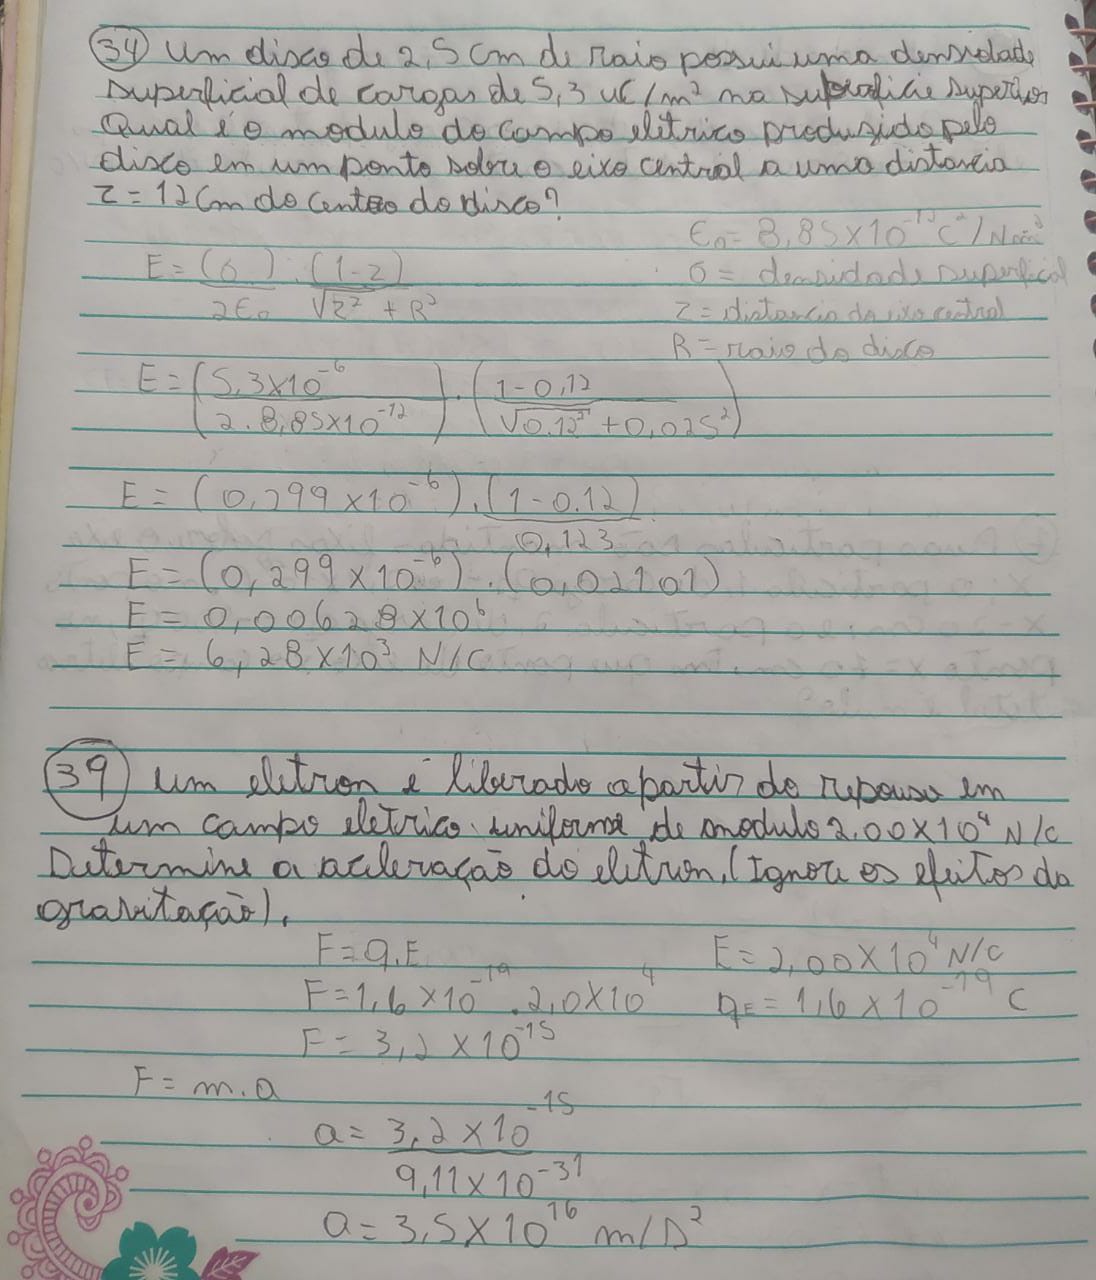 34 Um disco de 2,5 cm de raio possui uma densidade
superficial de cargas de 5,3 uC/m² na superficie superior
Qual é o modulo do campo elitrico produzido pelo
disco em um ponto sobre o eixo central a uma distancia
z = 12 cm do centro do disco?
E0 = 8,85x10^-12 C²/Nm²
E = (σ) . (1-z)
2E0 √z² + R²
σ = densidade superfical
z = distancia do eixo central
R = raio do disco
E = (5,3x10^-6) . (1-0,12)
(2. 8,85x10^-12) (√0,12² + 0,025²)
E = (0,299 x 10^-6) . (1-0.12)
0,123
E = (0,299 x 10^-6) . (0,02101)
E = 0,00628 x 10^6
E = 6,28 x 10³ N/C
39 um eletron é liberado apartir do repouso em
um campo eletrico uniforme de modulo 2,00x10^4 N/C
Determine a aceleração do eletron. (Ignore os efeitos da
gravitação).
F = q.E E = 2,00 x 10^4 N/C
F = 1,6 x 10^-19 . 2,0x10^4 qE = 1,6 x 10^-19 C
F = 3,2 x 10^-15
F = m.a
a = 3,2 x 10^-15
9,11 x 10^-31
a = 3,5 x 10^16 m/s²